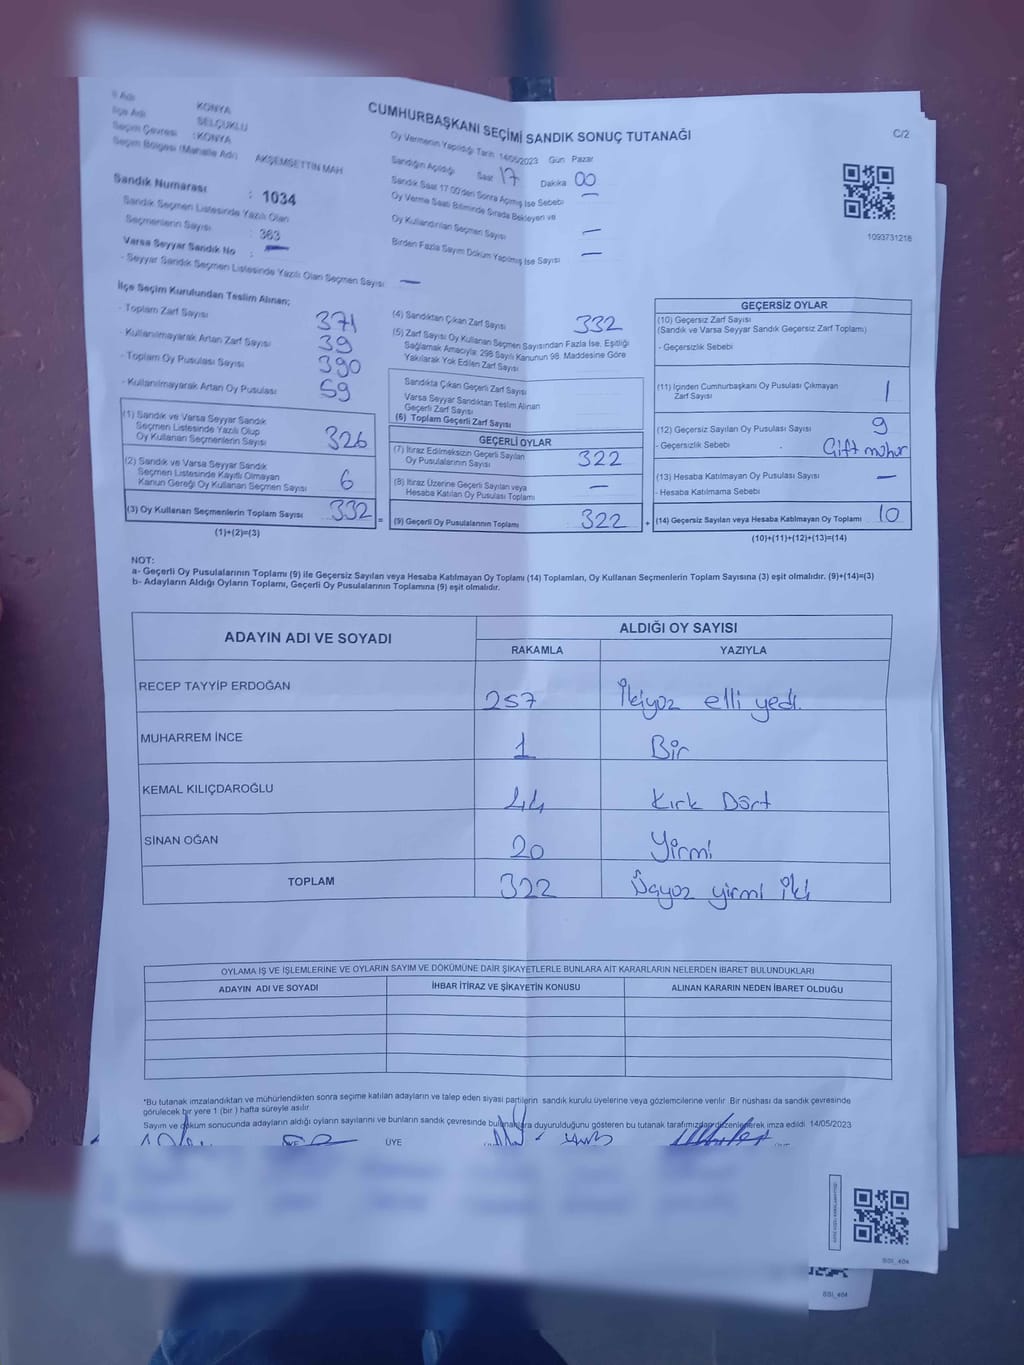 İl Adı KONYA
İlçe Adı SELÇUKLU
Seçim Çevresi : KONYA
Seçim Bölgesi (Mahalle Adı) AKŞEMSETTİN MAH
Sandık Numarası : 1034
Sandık Seçmen Listesinde Yazılı Olan
Seçmenlerin Sayısı : 363
Varsa Seyyar Sandık No : —
- Seyyar Sandık Seçmen Listesinde Yazılı Olan Seçmen Sayısı —
CUMHURBAŞKANI SEÇİMİ SANDIK SONUÇ TUTANAĞI
C/2
Oy Vermenin Yapıldığı Tarih 14/05/2023 Gün Pazar
Sandığın Açıldığı Saat 17 Dakika 00
Sandık Saat 17 00'den Sonra Açmış İse Sebebi —
Oy Verme Saati Bitiminde Sırada Bekleyen ve
Oy Kullandırılan Seçmen Sayısı —
Birden Fazla Sayım Döküm Yapılmış İse Sayısı —
1093731216
İlçe Seçim Kurulundan Teslim Alınan;
- Toplam Zarf Sayısı 371
- Kullanılmayarak Artan Zarf Sayısı 39
- Toplam Oy Pusulası Sayısı 390
- Kullanılmayarak Artan Oy Pusulası 59
(1) Sandık ve Varsa Seyyar Sandık
Seçmen Listesinde Yazılı Olup
Oy Kullanan Seçmenlerin Sayısı 326
(2) Sandık ve Varsa Seyyar Sandık
Seçmen Listesinde Kayıtlı Olmayan
Kanun Gereği Oy Kullanan Seçmen Sayısı 6
(3) Oy Kullanan Seçmenlerin Toplam Sayısı 332 =
(1)+(2)=(3)
(4) Sandıktan Çıkan Zarf Sayısı 332
(5) Zarf Sayısı Oy Kullanan Seçmen Sayısından Fazla İse, Eşitliği
Sağlamak Amacıyla; 298 Sayılı Kanunun 98. Maddesine Göre
Yakılarak Yok Edilen Zarf Sayısı
Sandıkta Çıkan Geçerli Zarf Sayısı
Varsa Seyyar Sandıktan Teslim Alınan
Geçerli Zarf Sayısı
(6) Toplam Geçerli Zarf Sayısı
GEÇERLİ OYLAR
(7) İtiraz Edilmeksizin Geçerli Sayılan
Oy Pusulalarının Sayısı 322
(8) İtiraz Üzerine Geçerli Sayılan veya
Hesaba Katılan Oy Pusulası Toplamı —
(9) Geçerli Oy Pusulalarının Toplamı 322 +
GEÇERSİZ OYLAR
(10) Geçersiz Zarf Sayısı
(Sandık ve Varsa Seyyar Sandık Geçersiz Zarf Toplamı)
- Geçersizlik Sebebi
(11) İçinden Cumhurbaşkanı Oy Pusulası Çıkmayan
Zarf Sayısı 1
(12) Geçersiz Sayılan Oy Pusulası Sayısı 9
- Geçersizlik Sebebi Çift mühür
(13) Hesaba Katılmayan Oy Pusulası Sayısı —
- Hesaba Katılmama Sebebi
(14) Geçersiz Sayılan veya Hesaba Katılmayan Oy Toplamı 10
(10)+(11)+(12)+(13)=(14)
NOT:
a- Geçerli Oy Pusulalarının Toplamı (9) ile Geçersiz Sayılan veya Hesaba Katılmayan Oy Toplamı (14) Toplamları, Oy Kullanan Seçmenlerin Toplam Sayısına (3) eşit olmalıdır. (9)+(14)=(3)
b- Adayların Aldığı Oyların Toplamı, Geçerli Oy Pusulalarının Toplamına (9) eşit olmalıdır.
ADAYIN ADI VE SOYADI ALDIĞI OY SAYISI
RAKAMLA YAZIYLA
RECEP TAYYİP ERDOĞAN 257 İkiyüz elli yedi.
MUHARREM İNCE 1 Bir
KEMAL KILIÇDAROĞLU 44 Kırk Dört
SİNAN OĞAN 20 Yirmi
TOPLAM 322 Üçyüz yirmi iki
OYLAMA İŞ VE İŞLEMLERİNE VE OYLARIN SAYIM VE DÖKÜMÜNE DAİR ŞİKAYETLERLE BUNLARA AİT KARARLARIN NELERDEN İBARET BULUNDUKLARI
ADAYIN ADI VE SOYADI İHBAR İTİRAZ VE ŞİKAYETİN KONUSU ALINAN KARARIN NEDEN İBARET OLDUĞU
*Bu tutanak imzalandıktan ve mühürlendikten sonra seçime katılan adayların ve talep eden siyasi partilerin sandık kurulu üyelerine veya gözlemcilerine verilir Bir nüshası da sandık çevresinde
görülecek bir yere 1 (bir ) hafta süreyle asılır
Sayım ve döküm sonucunda adayların aldığı oyların sayılarını ve bunların sandık çevresinde bulunanlara duyurulduğunu gösteren bu tutanak tarafımızdan düzenlenerek imza edildi 14/05/2023
ÜYE
BSI_404
BSI_404